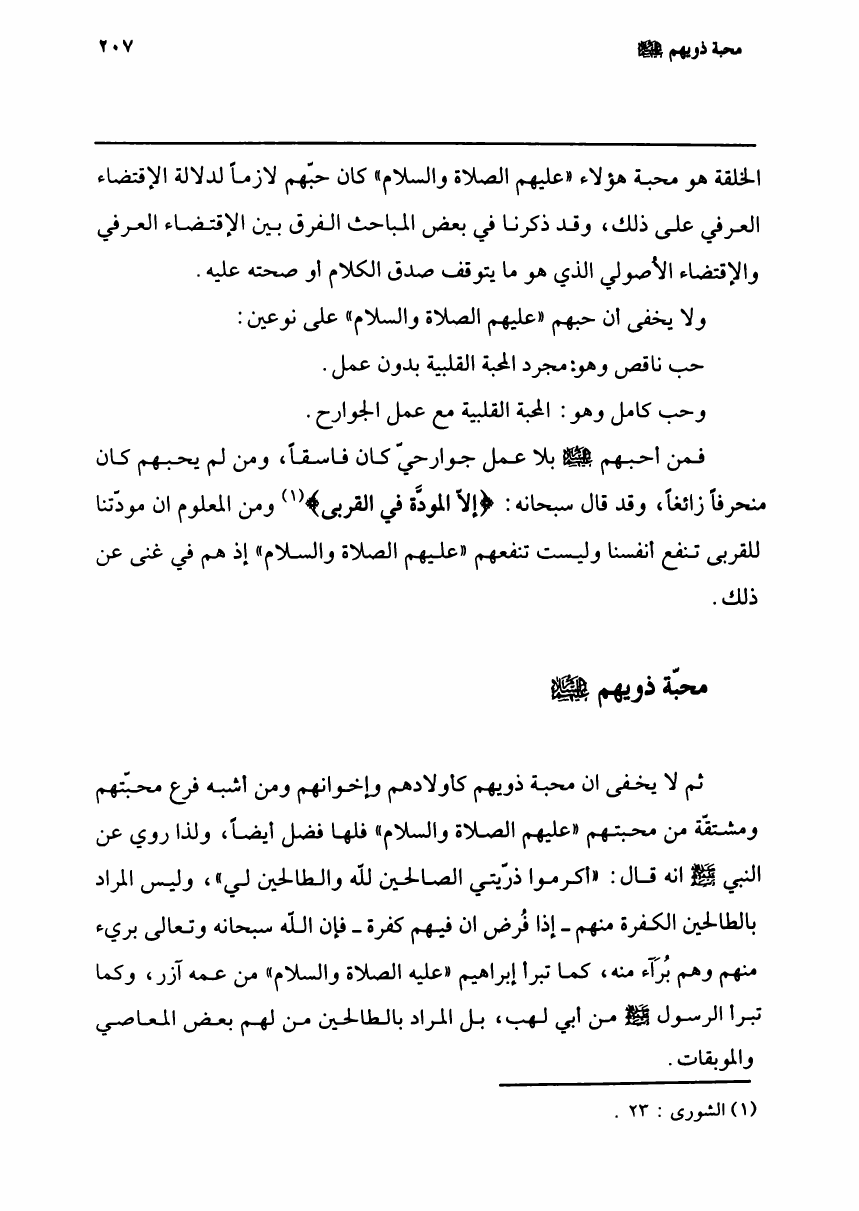 محبة ذويهم ﷺ ٢٠٧
الخلقة هو محبة هؤلاء «عليهم الصلاة والسلام» كان حبّهم لازماً لدلالة الإقتضاء
العرفي على ذلك، وقد ذكرنا في بعض المباحث الفرق بين الإقتضاء العرفي
والإقتضاء الأصولي الذي هو ما يتوقف صدق الكلام أو صحته عليه.
ولا يخفى أن حبهم «عليهم الصلاة والسلام» على نوعين:
حب ناقص وهو: مجرد المحبة القلبية بدون عمل.
وحب كامل وهو: المحبة القلبية مع عمل الجوارح.
فمن أحبهم ﷺ بلا عمل جوارحيّ كان فاسقاً، ومن لم يحبهم كان
منحرفاً زائغاً، وقد قال سبحانه: ﴿إلاّ المودَّة في القربى﴾(١) ومن المعلوم ان مودّتنا
للقربى تنفع أنفسنا وليست تنفعهم «عليهم الصلاة والسلام» إذ هم في غنى عن
ذلك.
محبّة ذويهم
ثم لا يخفى ان محبة ذويهم كأولادهم وإخوانهم ومن أشبه فرع محبّتهم
ومشتقّة من محبتهم «عليهم الصلاة والسلام» فلها فضل أيضاً، ولذا روي عن
النبي ﷺ انه قال: «أكرموا ذرّيتي الصالحين لله والطالحين لي»، وليس المراد
بالطالحين الكفرة منهم ـ إذا فُرض ان فيهم كفرة ـ فإن اللّه سبحانه وتعالى بريء
منهم وهم بُرَآء منه، كما تبرأ إبراهيم «عليه الصلاة والسلام» من عمه آزر، وكما
تبرأ الرسول ﷺ من أبي لهب، بل المراد بالطالحين من لهم بعض المعاصي
والموبقات.
(١) الشورى: ٢٣.